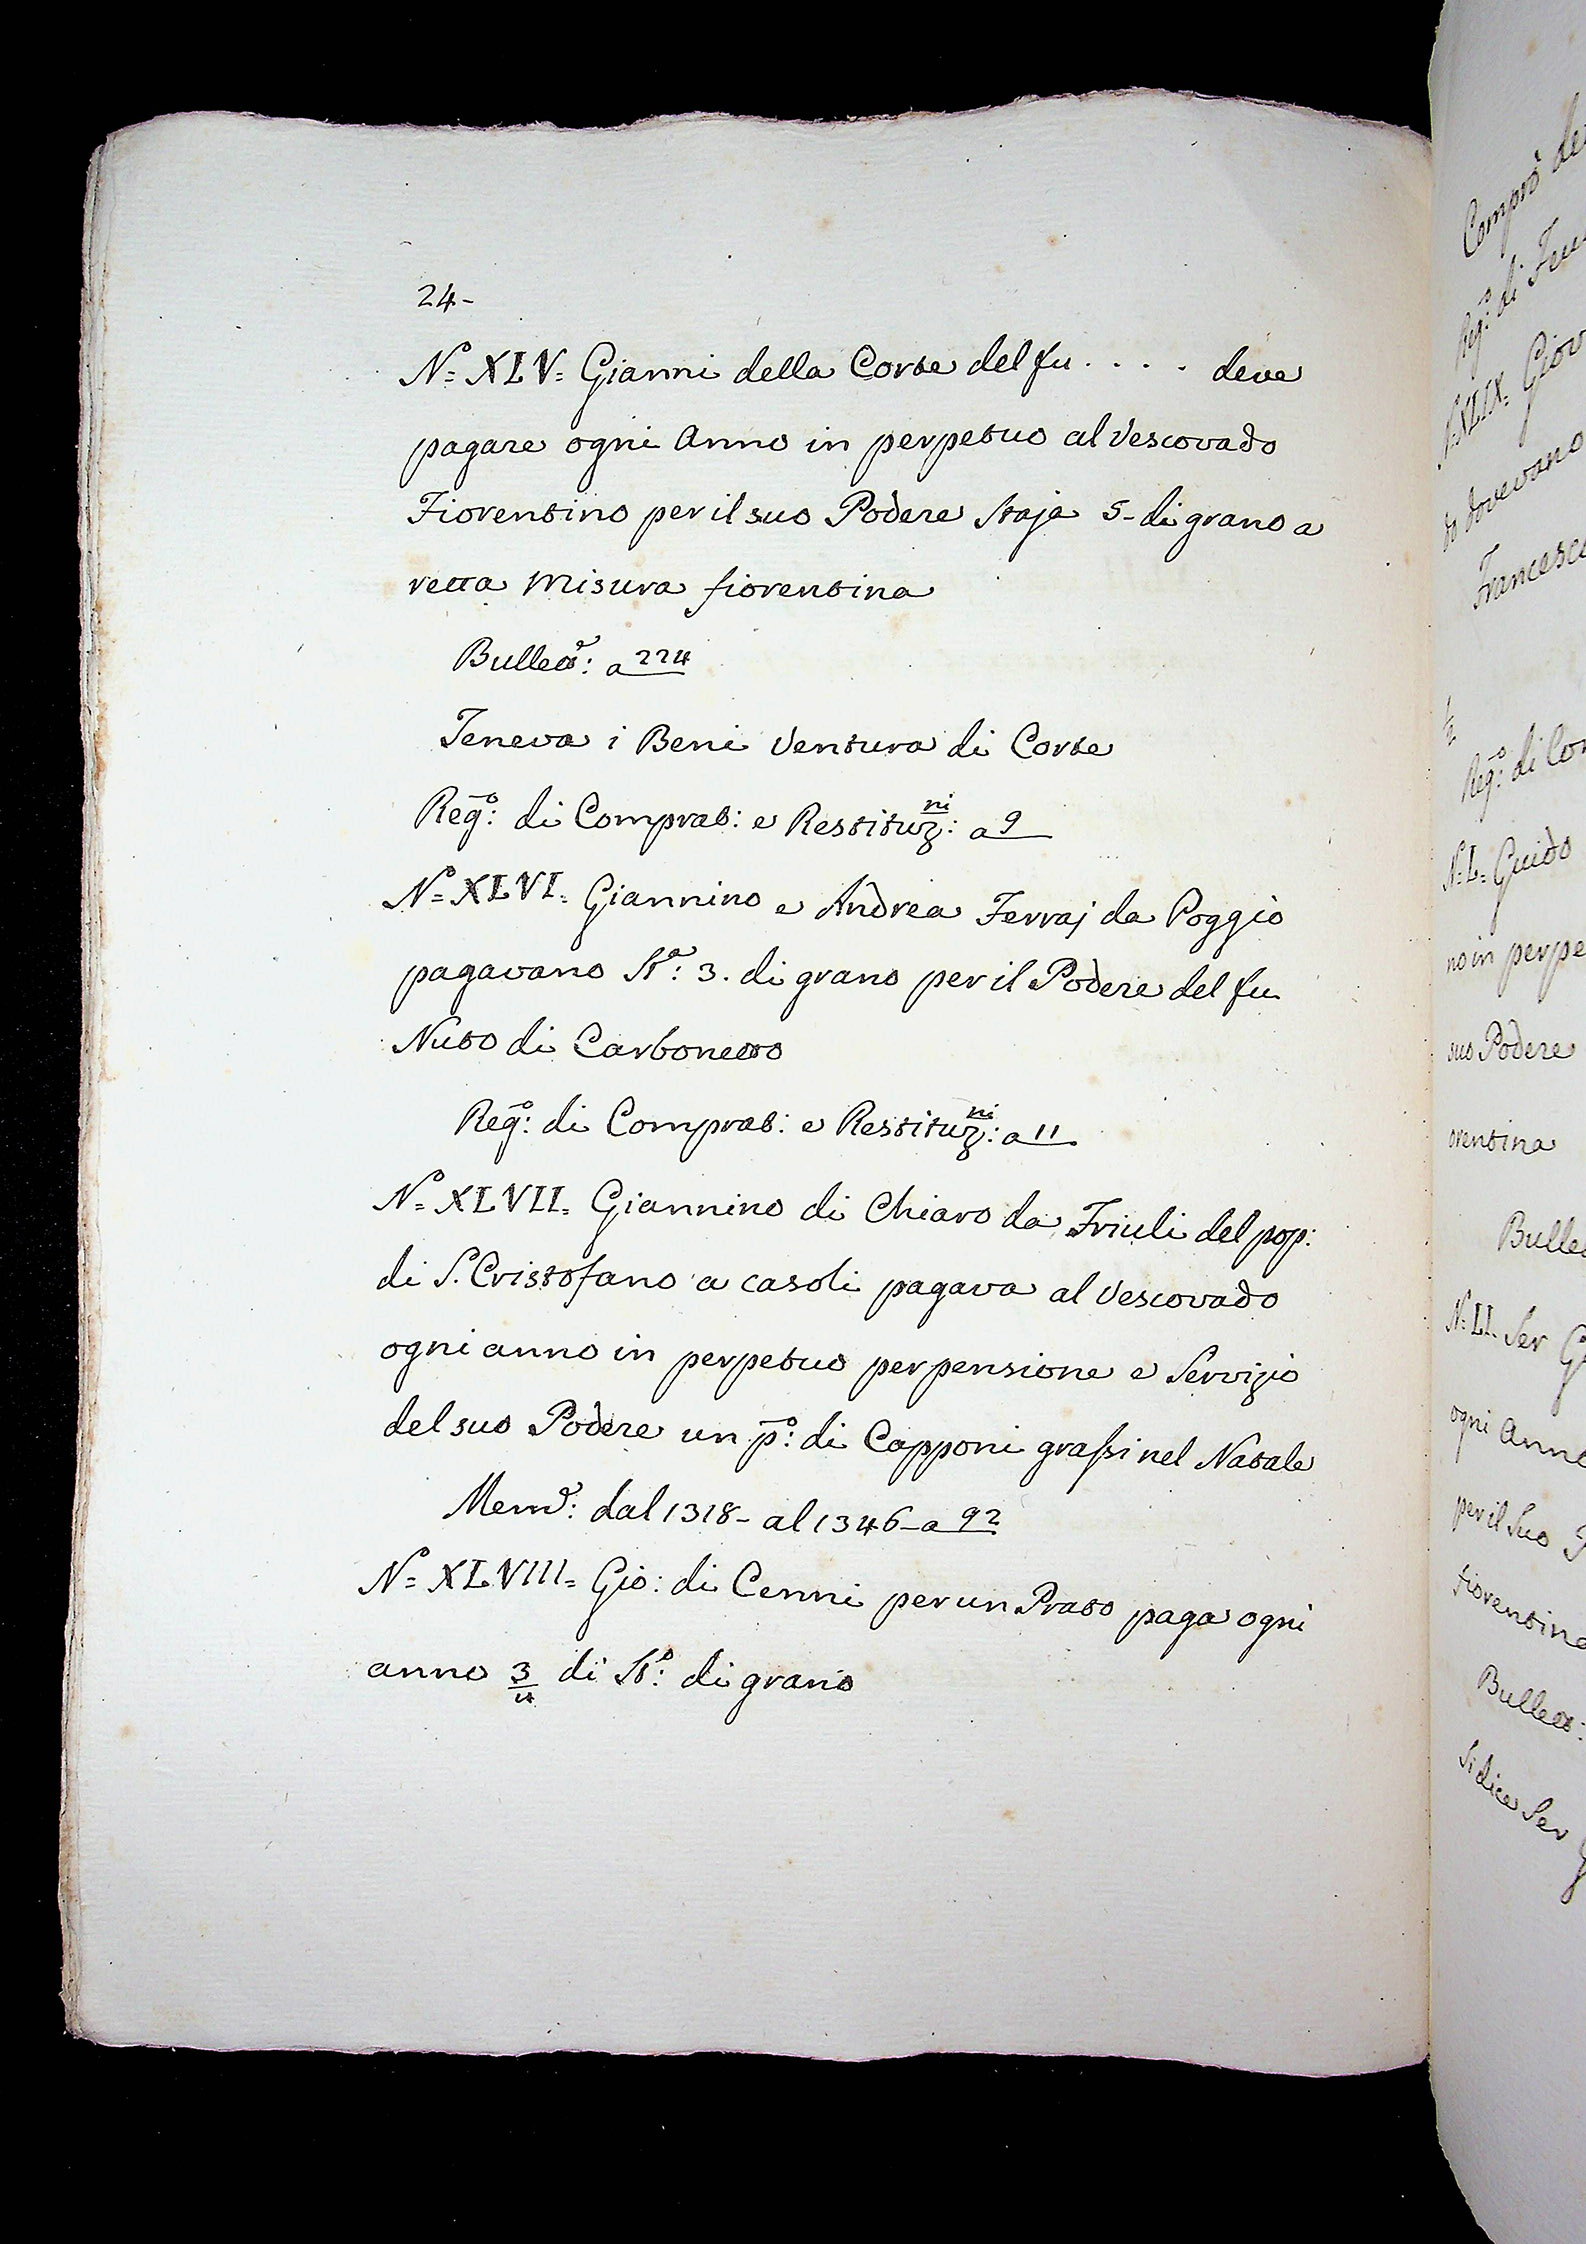 24-
Nº= XLV= Gianni della Corte del fu . . . . deve
pagare ogni Anno in perpetuo al Vescovado
Fiorentino per il suo Podere Staja 5- di grano a
retta Misura fiorentina
Bullettº: a 224
Teneva i Beni Ventura di Corte
Regº: di Comprat: e Restituzni: a 9
Nº= XLVI= Giannino e Andrea Ferraj da Poggio
pagavano Sta: 3. di grano per il Podere del fu
Nuto di Carbonetto
Regº: di Comprat: e Restituzni: a 11
Nº= XLVII= Giannino di Chiaro da Friuli del pop:
di S. Cristofano a casoli pagava al Vescovado
ogni anno in perpetuo per pensione e Servizio
del suo Podere un pº: di Capponi grassi nel Natale
Memº: dal 1318- al 1346- a 92
Nº= XLVIII= Gio: di Cenni per un Prato paga ogni
anno 3/4 di Stº: di grano
Comprò
Regº: di
XLIX= Giov
dovevano
Francesco
Regº: di Com
N=L= Guido
no in perpe
suo Podere
orentina
Bullet
N=LI= Ser G
ogni Anno
per il Suo P
fiorentina
Bullett:
Si dice Ser